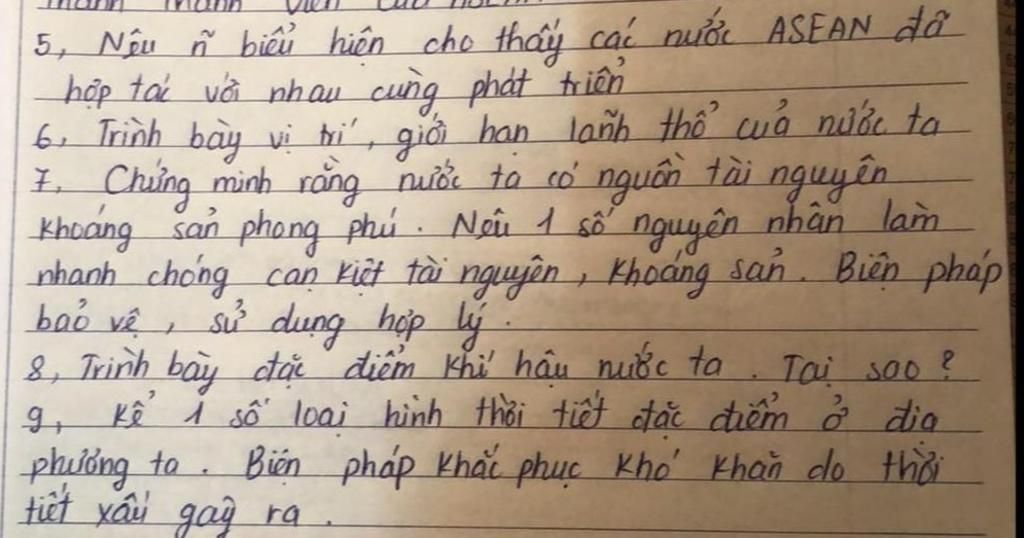 thành viên của
5, Nêu ñ biểu hiện cho thấy các nước ASEAN đã
hợp tác với nhau cùng phát triển
6, Trình bày vị trí, giới hạn lãnh thổ của nước ta
7, Chứng minh rằng nước ta có nguồn tài nguyên
khoáng sản phong phú. Nêu 1 số nguyên nhân làm
nhanh chóng cạn kiệt tài nguyên, khoáng sản. Biện pháp
bảo vệ, sử dụng hợp lý.
8, Trình bày đặc điểm khí hậu nước ta. Tại sao?
9, kể 1 số loại hình thời tiết đặc điểm ở địa
phương ta. Biện pháp khắc phục khó khăn do thời
tiết xấu gây ra.